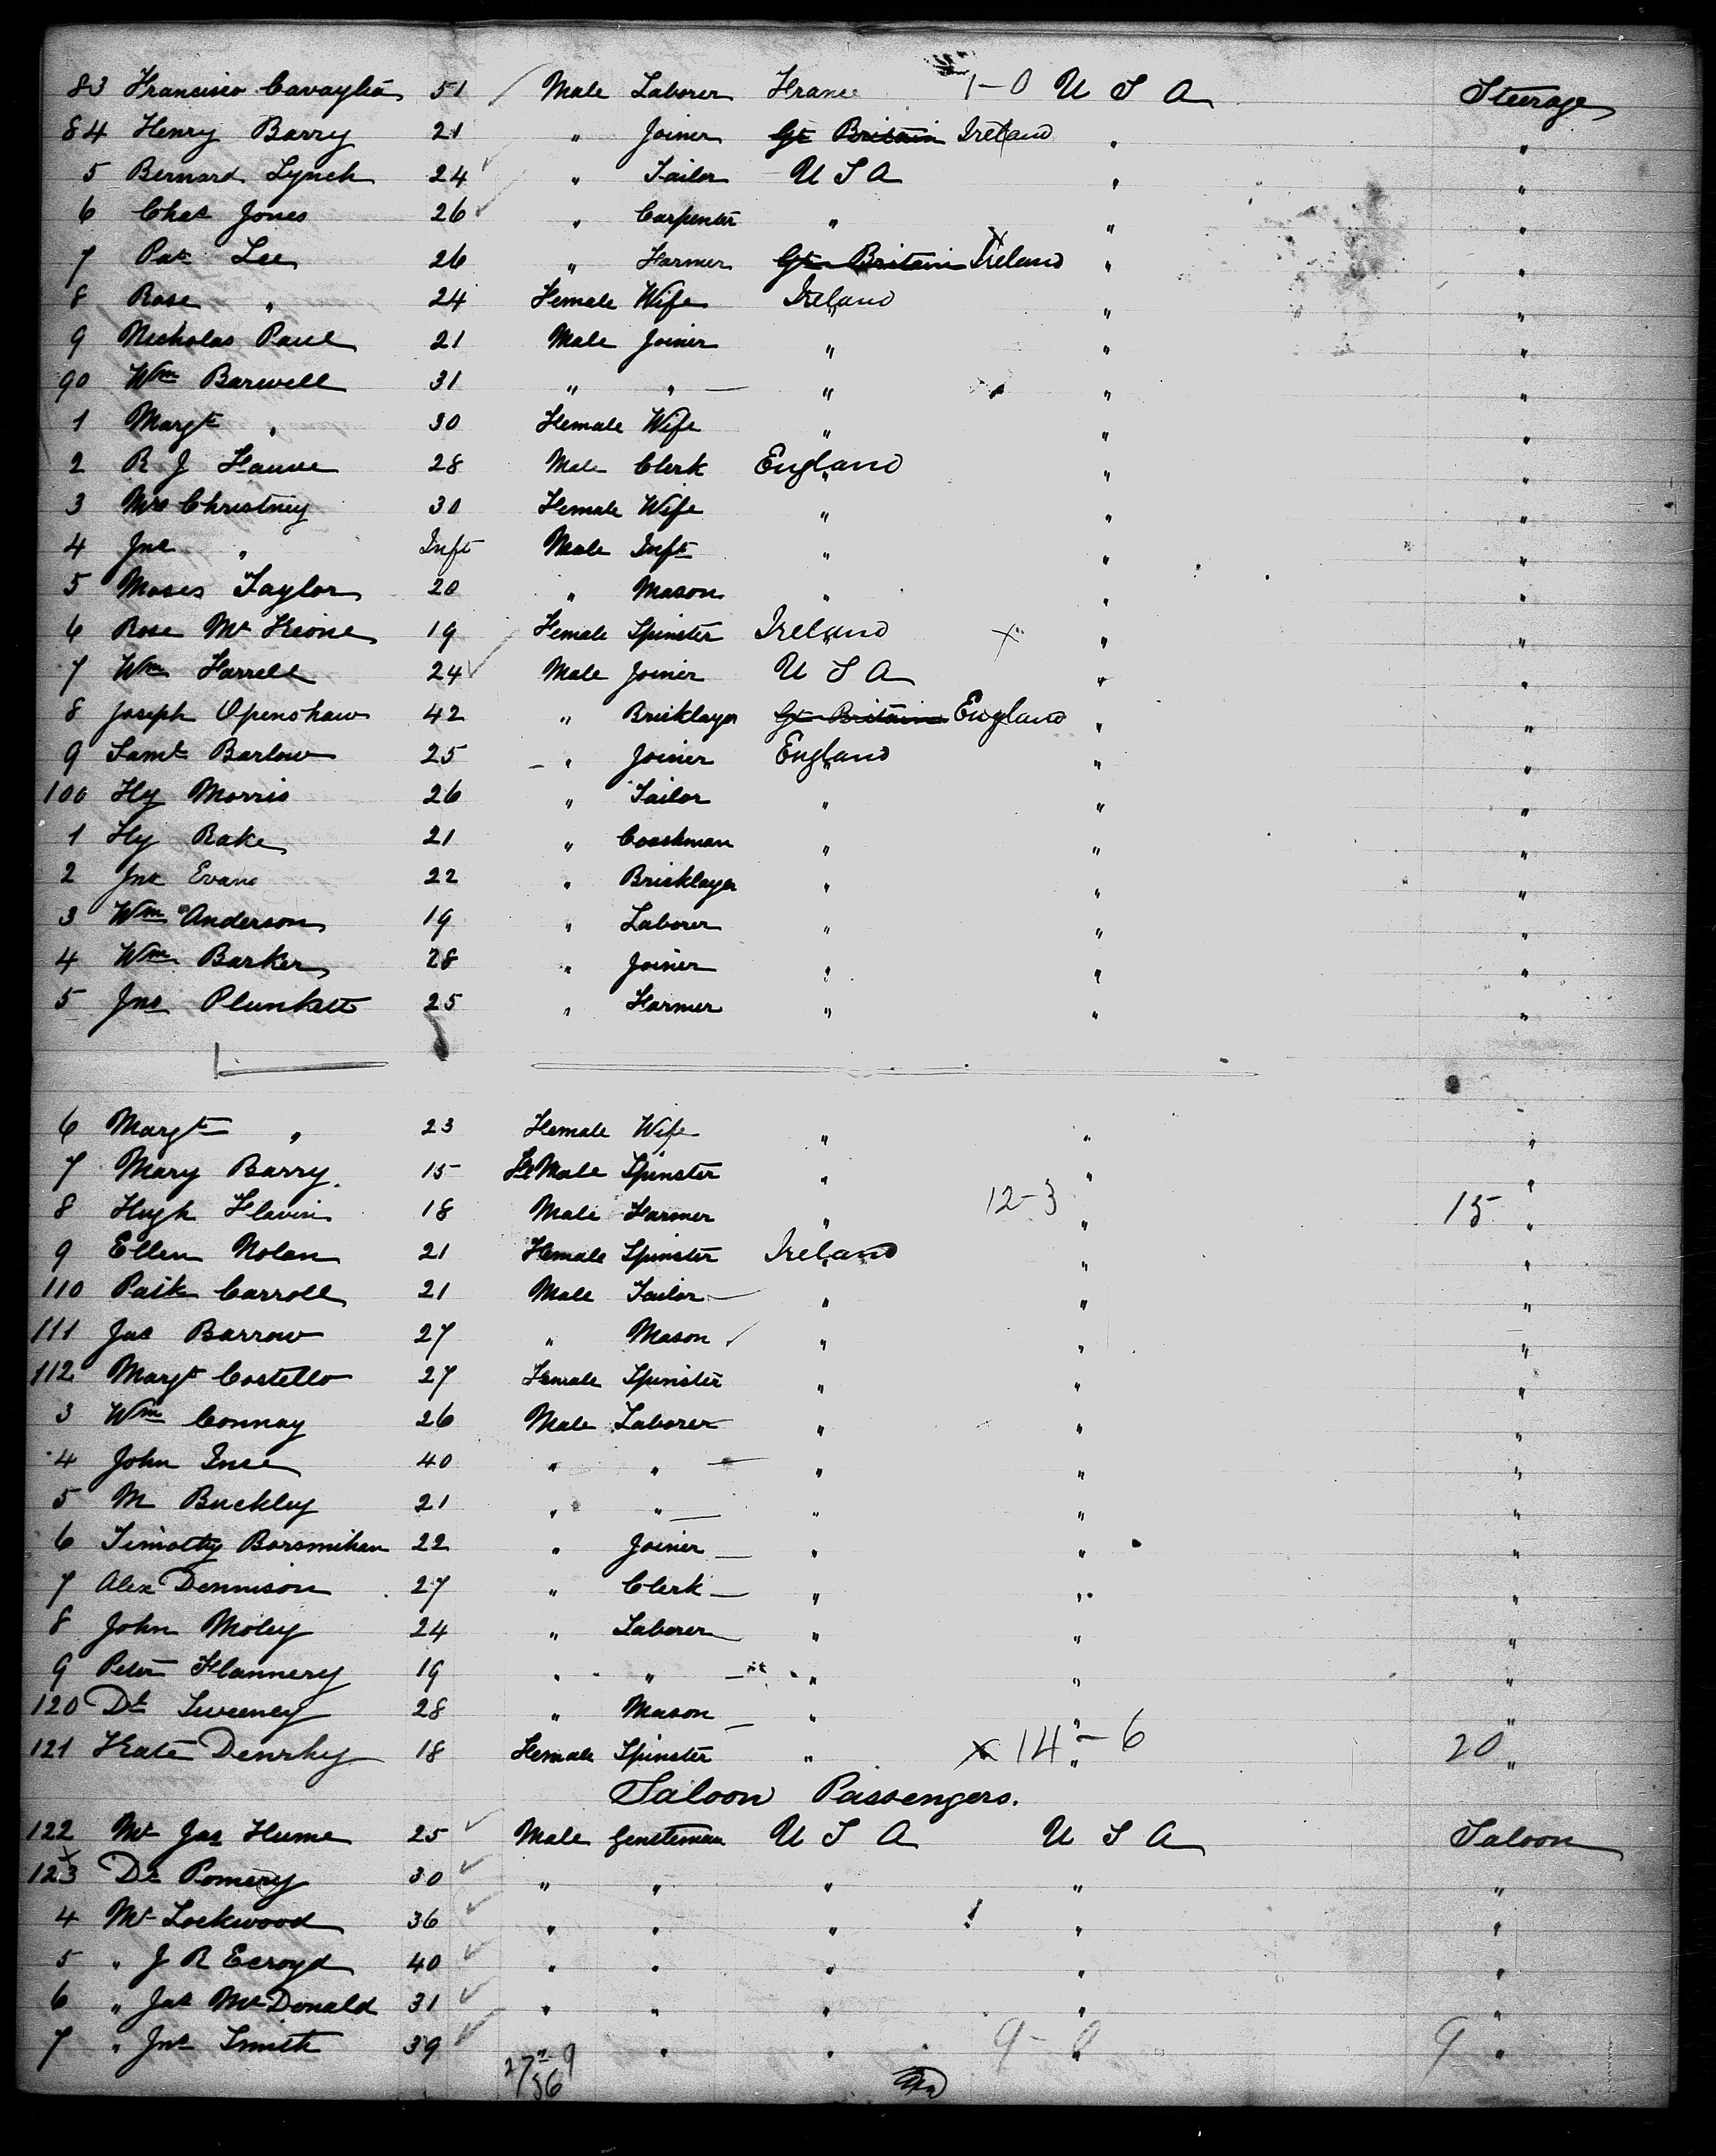 83 Francisco Cavaglia 51 Male Laborer France 1-0 U S A Steerage
84 Henry Barry 21 " Joiner Gt Britain Ireland " "
5 Bernard Lynch 24 " Tailor U S A " "
6 Chas Jones 26 " Carpenter " " "
7 Pat Lee 26 " Farmer Gt Britain Ireland " "
8 Rose " 24 Female Wife Ireland " "
9 Nicholas Paul 21 Male Joiner " " "
90 Wm Barwell 31 " " " " "
1 Margt " 30 Female Wife " " "
2 R J 28 Male Clerk England " "
3 Mrs Christney 30 Female Wife " " "
4 Jno " Inft Male Inft " " "
5 Moses Taylor 20 " Mason " " "
6 Rose Mc Keone 19 Female Spinster Ireland x " "
7 Wm Farrell 24 Male Joiner U S A " "
8 Joseph Openshaw 42 " Bricklayer Gt Britain England " "
9 Saml Barlow 25 " Joiner England " "
100 Hy Morris 26 " Tailor " " "
1 Hy Rake 21 " Coachman " " "
2 Jno Evans 22 " Bricklayer " " "
3 Wm Anderson 19 " Laborer " " "
4 Wm Barker 28 " Joiner " " "
5 Jno Plunkett 25 " Farmer " " "
6 Margt " 23 Female Wife " " "
7 Mary Barry 15 FeMale Spinster " " "
8 Hugh Flavin 18 Male Farmer " 12-3 " 15 "
9 Ellen Nolan 21 Female Spinster Ireland " "
110 Patk Carroll 21 Male Tailor " " "
111 Jas Barrow 27 " Mason " " "
112 Margt Costello 27 Female Spinster " " "
3 Wm Connay 26 Male Laborer " " "
4 John Ince 40 " " " " "
5 M Buckley 21 " " " " "
6 Timothy 22 " Joiner " " "
7 Alex Dennison 27 " Clerk " " "
8 John Moley 24 " Laborer " " "
9 Peter Flannery 19 " " " " "
120 Dl Sweeney 28 " Mason " " "
121 Kate 18 Female Spinster " x 14-6 " 20 "
Saloon Passengers.
122 Mr Jas Hume 25 Male Gentleman U S A U S A Saloon
123 Dr Pomery 30 " " " " "
4 Mr Lockwood 36 " " " " "
5 " J R Ecroyd 40 " " " " "
6 " Jas McDonald 31 " " " " "
7 " Jno Smith 39 " " 9-0 " 9 "